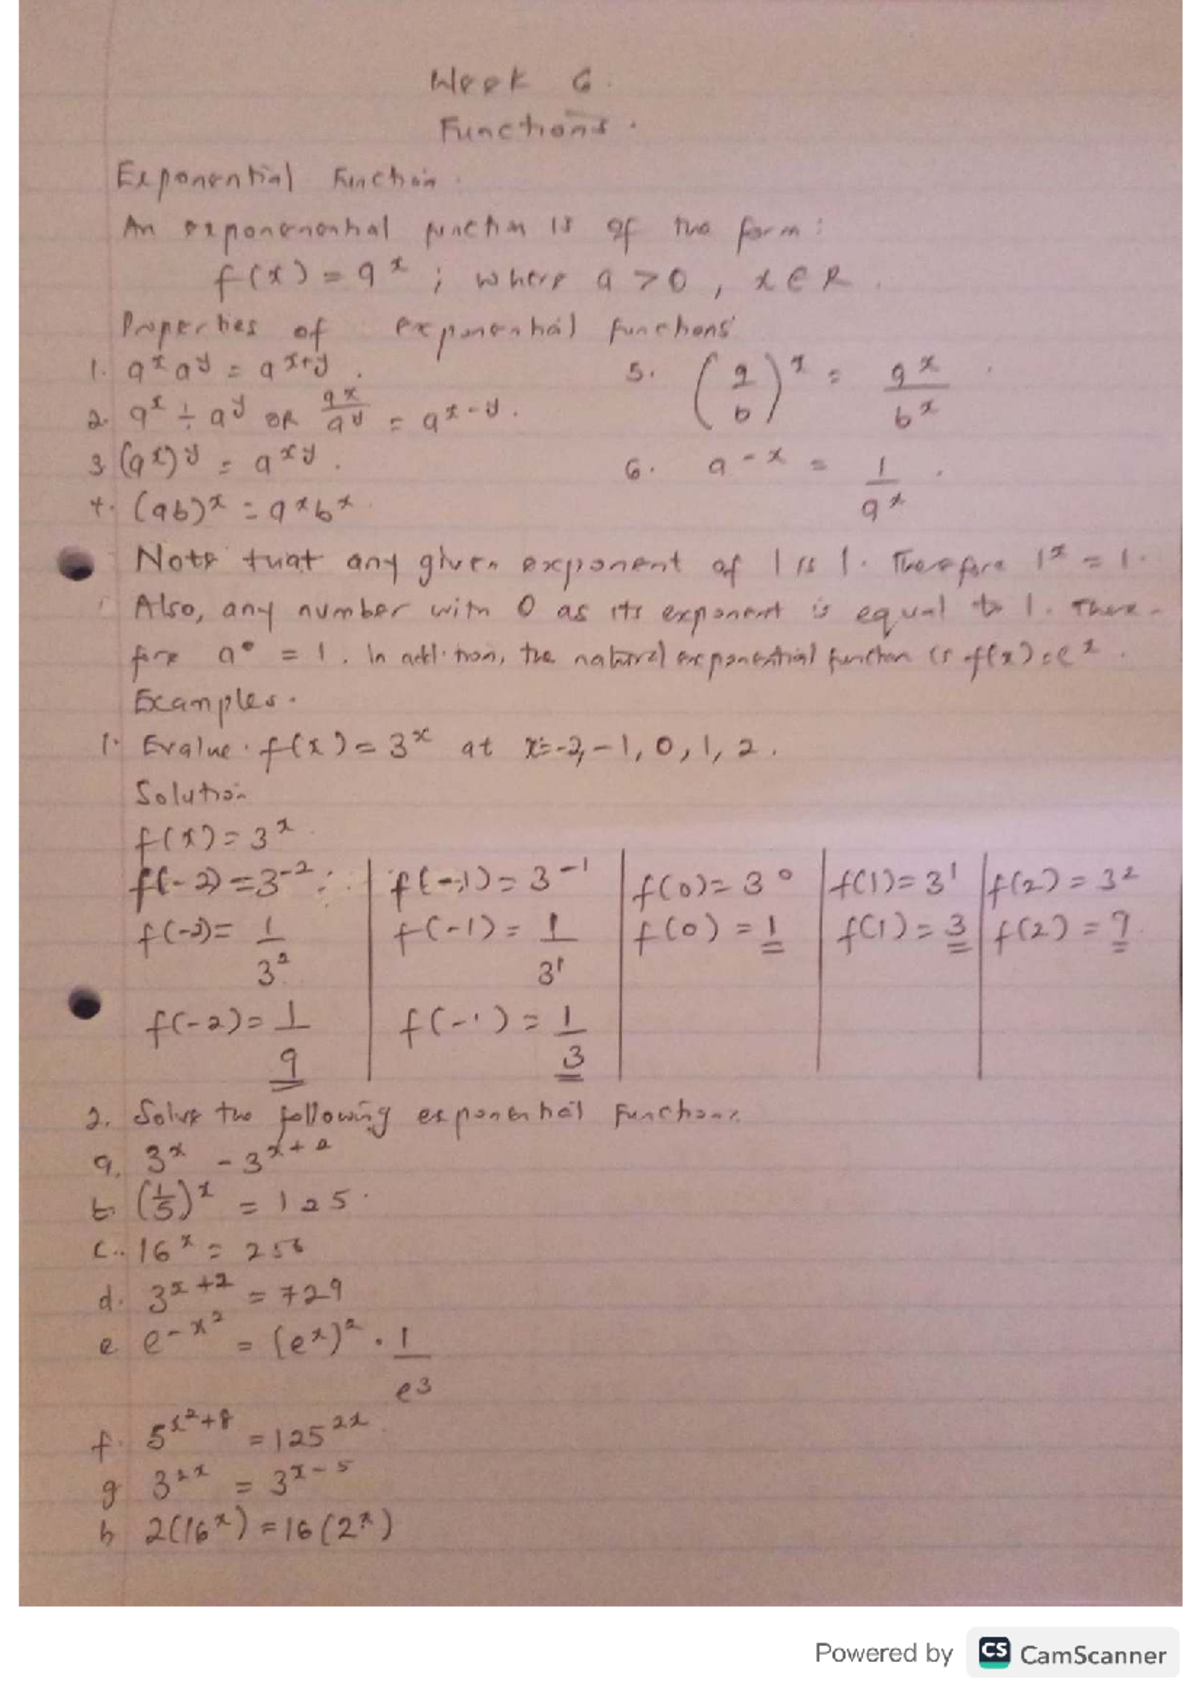 Week 6.
Functions.
Exponential Function.
An exponenenhal function is of the form:
f(x) = a^x ; where a > 0 , x ∈ R .
Properties of exponential functions
1. a^x a^y = a^{x+y} .
5. (a/b)^x = a^x/b^x .
2. a^x ÷ a^y OR a^x/a^y = a^{x-y} .
3 (a^x)^y = a^{xy} .
6. a^{-x} = 1/a^x .
4. (ab)^x = a^x b^x .
Note that any given exponent of 1 is 1. Therefore 1^x = 1.
Also, any number with 0 as its exponent is equal to 1. There-
fore a^0 = 1. In addition, the natural exponential function is f(x) = e^x .
Examples.
1. Evalue. f(x) = 3^x at x=-2, -1, 0, 1, 2 .
Solution
f(x) = 3^x .
f(-2) = 3^{-2} | f(-1) = 3^{-1} | f(0) = 3^0 | f(1) = 3^1 | f(2) = 3^2
f(-2) = 1/3^2 | f(-1) = 1/3^1 | f(0) = 1 | f(1) = 3 | f(2) = 9
f(-2) = 1/9 | f(-1) = 1/3
2. Solve the following exponential functions
a. 3^x - 3^{x+2}
b (1/5)^x = 125 .
c. 16^x = 256
d. 3^{x+2} = 729
e e^{-x^2} = (e^x)^2 . 1/e^3
f. 5^{x^2+8} = 125^{2x} .
g 3^{2x} = 3^{x-5}
h 2(16^x) = 16(2^x)
Powered by CS CamScanner